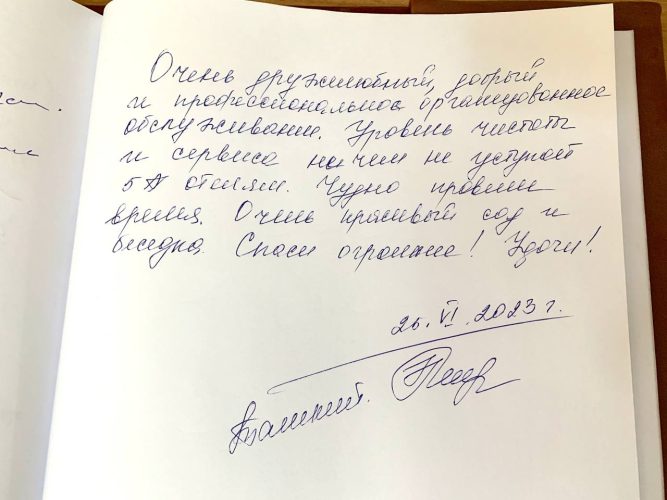 Очень дружелюбный, добрый
и профессионально организованное
обслуживание. Уровень чистоты
и сервиса ни чем не уступает
5☆ отелям. Чудно провели
время. Очень красивый сад и
беседка. Спаси огромные! Удачи!
26.VI.2023г.